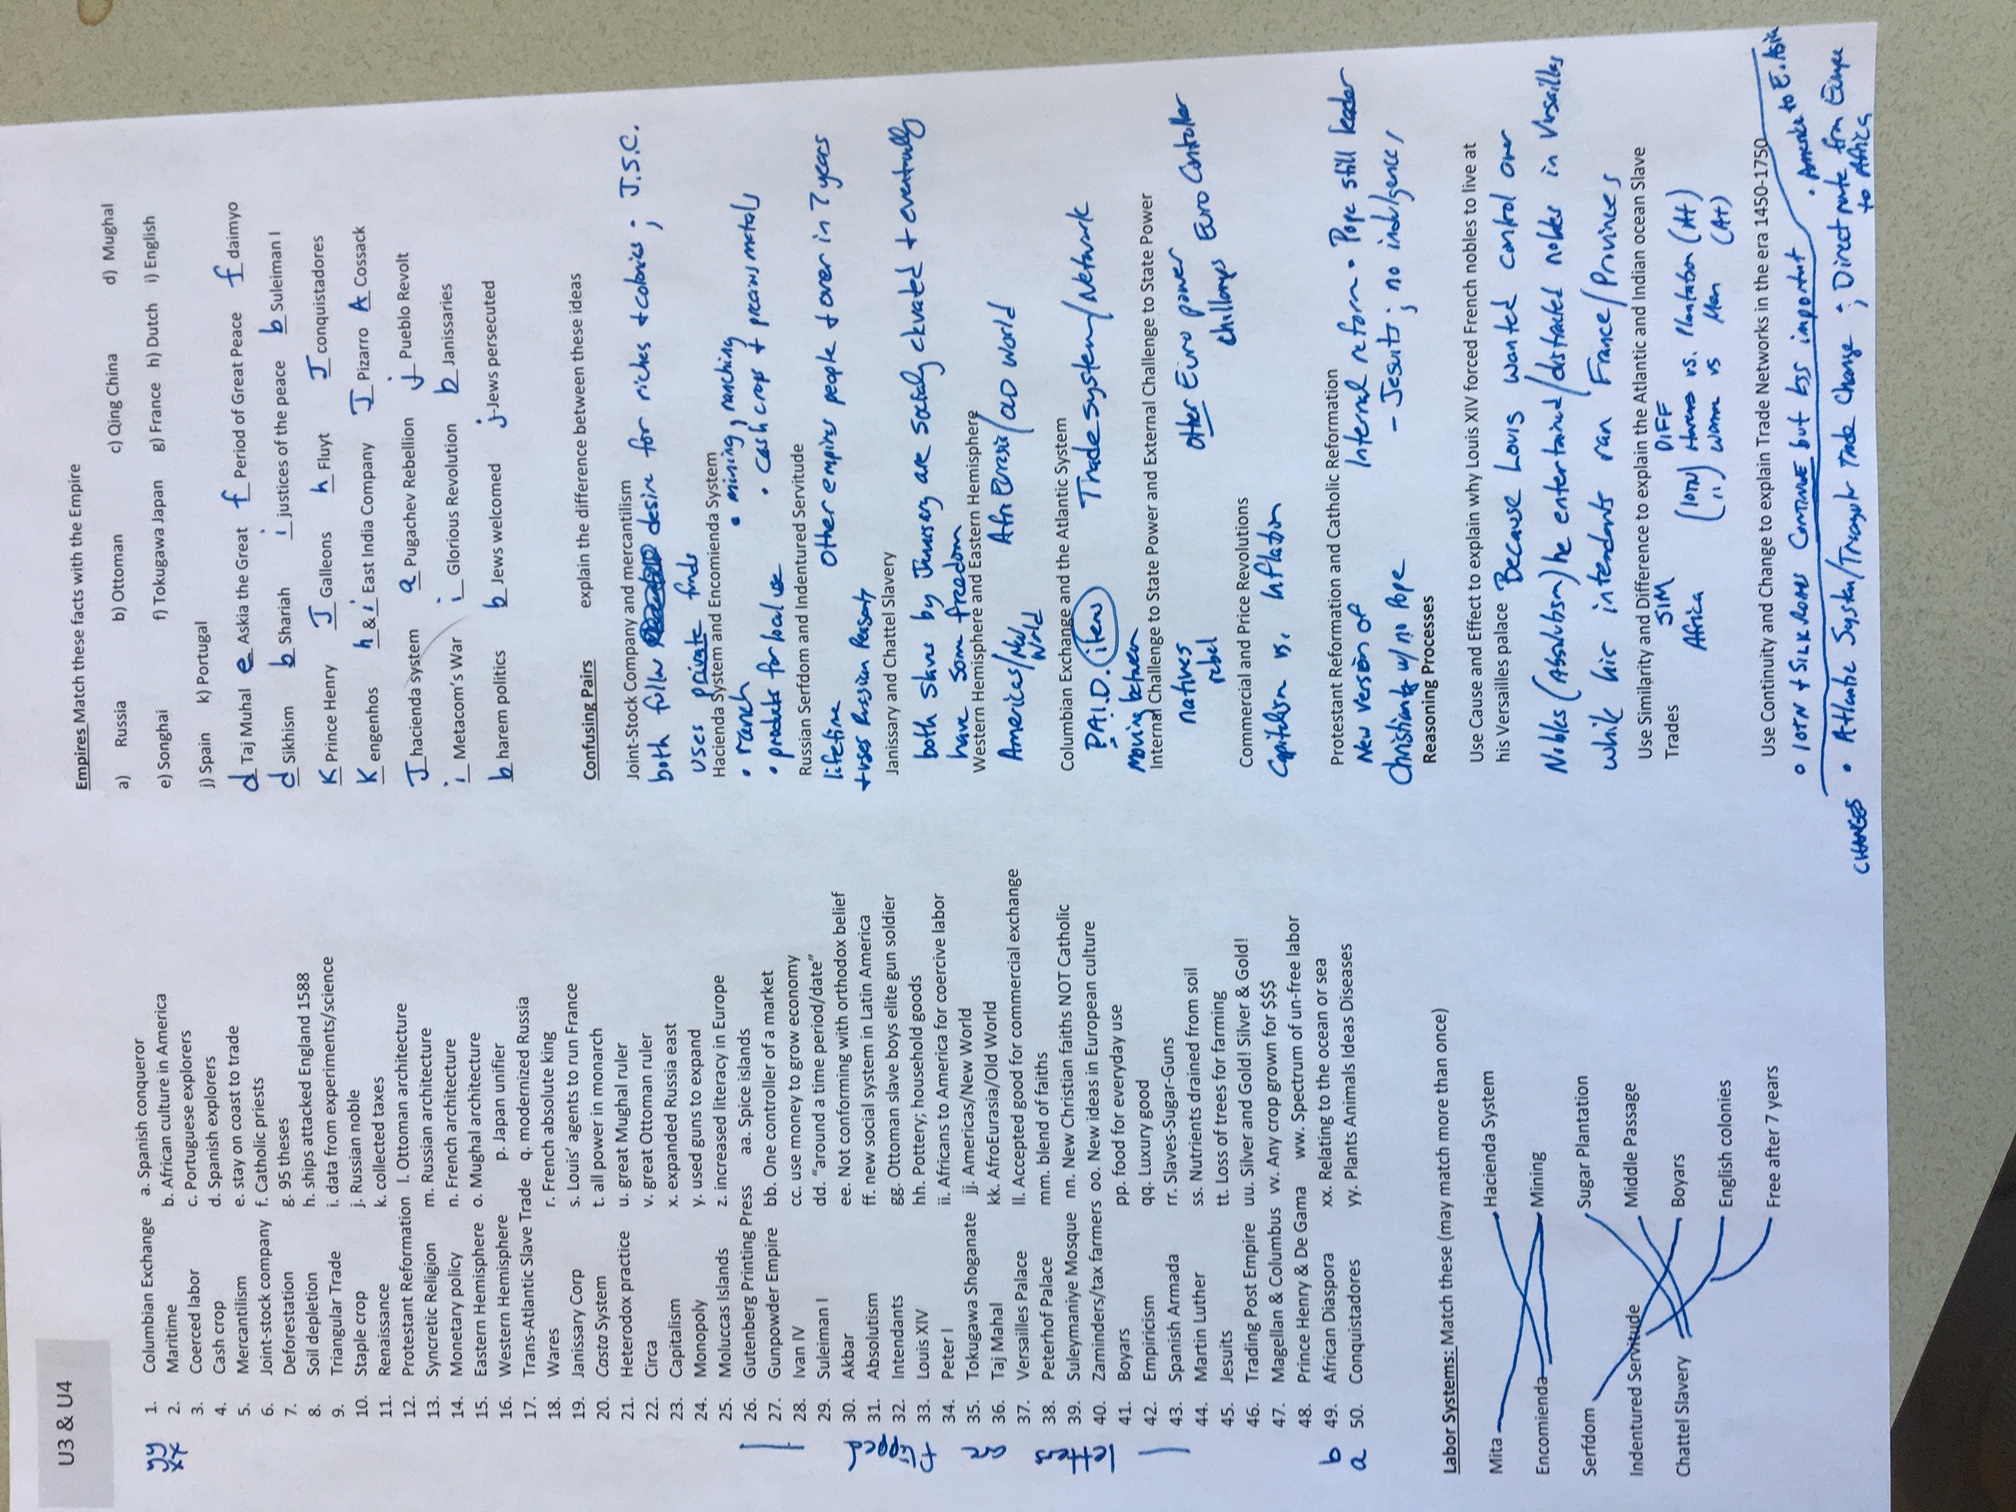 U3 & U4
yy 1. Columbian Exchange a. Spanish conqueror
xx 2. Maritime b. African culture in America
3. Coerced labor c. Portuguese explorers
4. Cash crop d. Spanish explorers
5. Mercantilism e. stay on coast to trade
6. Joint-stock company f. Catholic priests
7. Deforestation g. 95 theses
8. Soil depletion h. ships attacked England 1588
9. Triangular Trade i. data from experiments/science
10. Staple crop j. Russian noble
11. Renaissance k. collected taxes
12. Protestant Reformation l. Ottoman architecture
13. Syncretic Religion m. Russian architecture
14. Monetary policy n. French architecture
15. Eastern Hemisphere o. Mughal architecture
16. Western Hemisphere p. Japan unifier
17. Trans-Atlantic Slave Trade q. modernized Russia
18. Wares r. French absolute king
19. Janissary Corp s. Louis' agents to run France
20. Casta System t. all power in monarch
21. Heterodox practice u. great Mughal ruler
22. Circa v. great Ottoman ruler
23. Capitalism x. expanded Russia east
24. Monopoly y. used guns to expand
25. Moluccas Islands z. increased literacy in Europe
26. Gutenberg Printing Press aa. Spice islands
27. Gunpowder Empire bb. One controller of a market
28. Ivan IV cc. use money to grow economy
29. Suleiman I dd. "around a time period/date"
30. Akbar ee. Not conforming with orthodox belief
31. Absolutism ff. new social system in Latin America
32. Intendants gg. Ottoman slave boys elite gun soldier
33. Louis XIV hh. Pottery; household goods
34. Peter I ii. Africans to America for coercive labor
35. Tokugawa Shoganate jj. Americas/New World
36. Taj Mahal kk. AfroEurasia/Old World
37. Versailles Palace ll. Accepted good for commercial exchange
38. Peterhof Palace mm. blend of faiths
39. Suleymaniye Mosque nn. New Christian faiths NOT Catholic
40. Zaminders/tax farmers oo. New ideas in European culture
41. Boyars pp. food for everyday use
42. Empiricism qq. Luxury good
43. Spanish Armada rr. Slaves-Sugar-Guns
44. Martin Luther ss. Nutrients drained from soil
45. Jesuits tt. Loss of trees for farming
46. Trading Post Empire uu. Silver and Gold! Silver & Gold!
47. Magellan & Columbus vv. Any crop grown for $$$
48. Prince Henry & De Gama ww. Spectrum of un-free labor
b 49. African Diaspora xx. Relating to the ocean or sea
a 50. Conquistadores yy. Plants Animals Ideas Diseases
flipped
letters
Labor Systems: Match these (may match more than once)
Mita Hacienda System
Encomienda Mining
Serfdom Sugar Plantation
Indentured Servitude Middle Passage
Chattel Slavery Boyars
English colonies
Free after 7 years
Empires Match these facts with the Empire
a) Russia b) Ottoman c) Qing China d) Mughal
e) Songhai f) Tokugawa Japan g) France h) Dutch i) English
j) Spain k) Portugal
d Taj Muhal e Askia the Great f Period of Great Peace f daimyo
d Sikhism b Shariah i justices of the peace b Suleiman I
K Prince Henry J Galleons h Fluyt J conquistadores
K engenhos h & i East India Company J Pizarro A Cossack
J hacienda system a Pugachev Rebellion j Pueblo Revolt
i Metacom's War i Glorious Revolution b Janissaries
b harem politics b Jews welcomed j Jews persecuted
Confusing Pairs explain the difference between these ideas
Joint-Stock Company and mercantilism
both follow desire for riches + colonies ; J.S.C.
uses private funds
Hacienda System and Encomienda System
• ranch • mining, ranching
• products for local use • cash crops + precious metals
Russian Serfdom and Indentured Servitude
lifetime Other empires people + over in 7 years
+ uses Russian Peasants
Janissary and Chattel Slavery
both slaves by Janissary are socially elevated + eventually
have some freedom
Western Hemisphere and Eastern Hemisphere
Americas/New World Afro Eurasia/OLD World
Columbian Exchange and the Atlantic System
P.A.I.D. items moving between Trade System/Network
Internal Challenge to State Power and External Challenge to State Power
natives rebel other Euro power challenges Euro Controller
Commercial and Price Revolutions
Capitalism vs. Inflation
Protestant Reformation and Catholic Reformation
New version of Christianity w/ no Pope
Internal reform • Pope still leader
- Jesuits ; no indulgences
Reasoning Processes
Use Cause and Effect to explain why Louis XIV forced French nobles to live at
his Versailles palace Because Louis wanted control over
Nobles (Absolutism) he entertained/distracted nobles in Versailles
while his intendants ran France/Provinces
Use Similarity and Difference to explain the Atlantic and Indian ocean Slave
Trades
SIM DIFF
Africa (IOTN) Harems vs. Plantation (At)
(") Women vs Men (At)
Use Continuity and Change to explain Trade Networks in the era 1450-1750
• IOTN + SILK ROADS CONTINUE but less important
• Americas to E. Asia
CHANGES • Atlantic System/Triangle Trade Change ; Direct route from Europe
to Africa